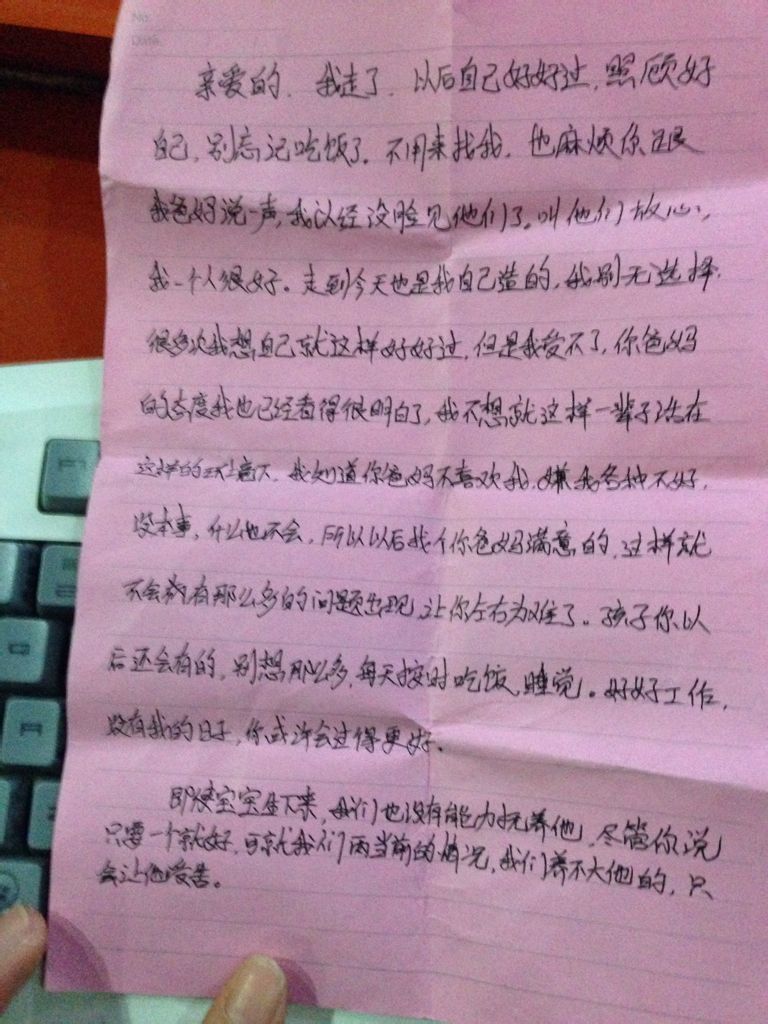 No.
Date.
亲爱的、我走了、以后自己好好过,照顾好
自己,别忘记吃饭了。不用来找我,也麻烦你跟
我爸妈说一声,我认经没脸见他们了。叫他们放心,
我一个人很好。走到今天也是我自己造的,我别无选择.
很多次我想自己就这样好好过,但是我受不了,你爸妈
的态度我也已经看得很明白了,我不想就这样一辈子活在
这样的环境下,我知道你爸妈不喜欢我,嫌我各种不好,
没本事,什么也不会,所以以后找个你爸妈满意的,这样就
不会我有那么多的问题出现,让你左右为难了。孩子你以
后还会有的,别想那么多,每天按时吃饭,睡觉。好好工作,
没有我的日子,你或许会过得更好.
即使宝宝生下来,我们也没有能力抚养他,尽管你说
只要一个就好,可就我们两当前的情况,我们养不大他的,只
会让他受苦。